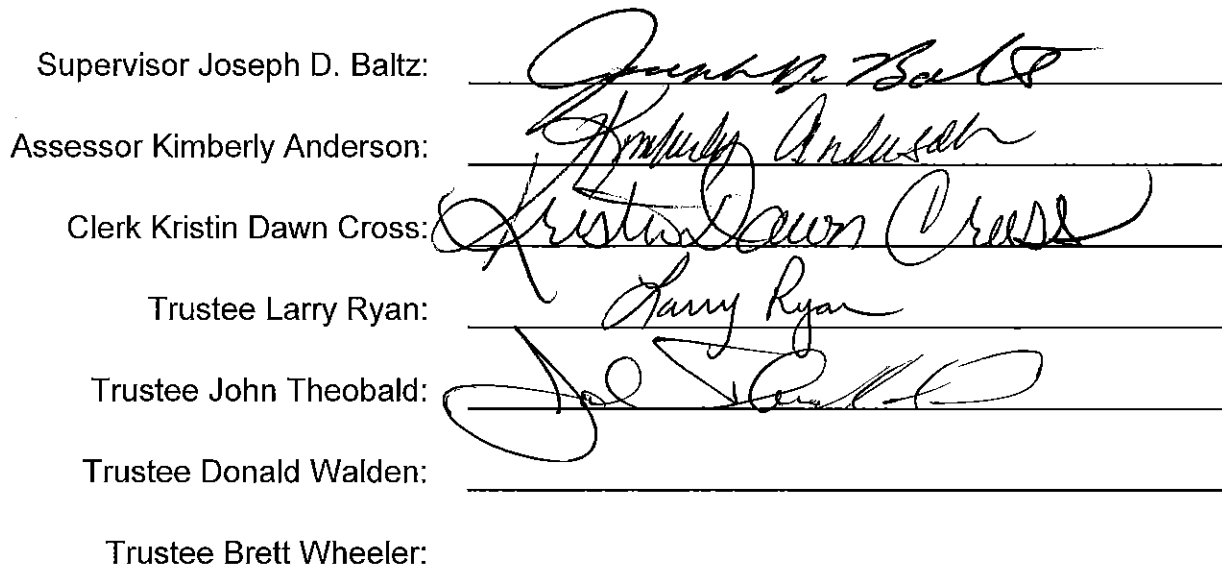 Supervisor Joseph D. Baltz: Joseph D. Baltz
Assessor Kimberly Anderson: Kimberly Anderson
Clerk Kristin Dawn Cross: Kristin Dawn Cross
Trustee Larry Ryan: Larry Ryan
Trustee John Theobald: John Theobald
Trustee Donald Walden:
Trustee Brett Wheeler: